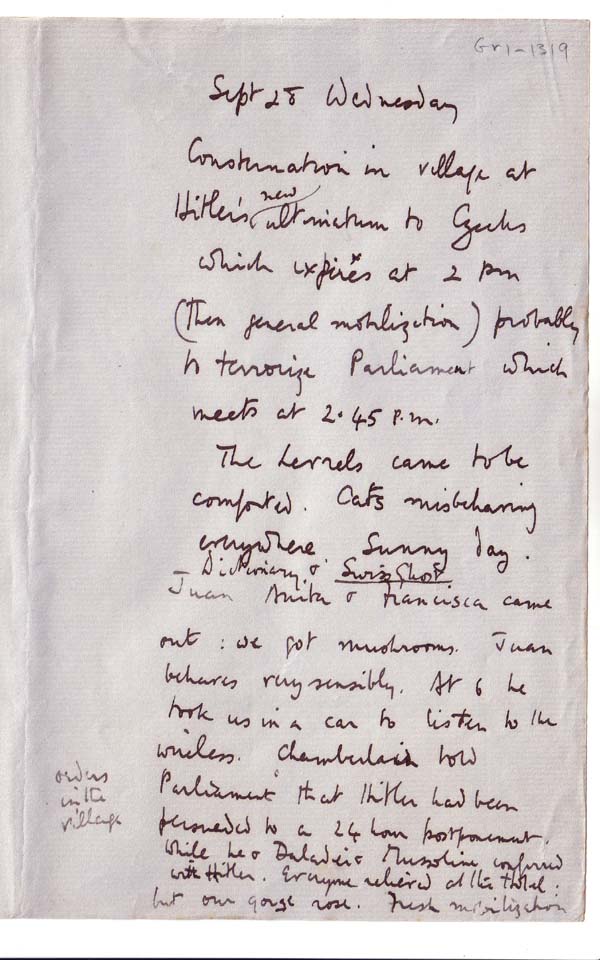 Gr1-1319
Sept 28 Wednesday
Consternation in village at
Hitler's new ultimatum to Czechs
which expires at 2 pm
(Then general mobilization) probably
to terrorize Parliament which
meets at 2.45 p.m.
The came to be
comforted. Cats misbehaving
everywhere. Sunny day.
Dictionary & Swiss Ghost
Juan Anita & Francisca came
out: we got mushrooms. Juan
behaves very sensibly. At 6 he
took us in a car to listen to the
wireless. Chamberlain told
Parliament that Hitler had been
persuaded to a 24 hour postponement.
While he & Daladier & Mussolini conferred
with Hitler. Everyone relieved at the Hotel:
but our gorge rose. Fresh mobilization
orders
in the
village